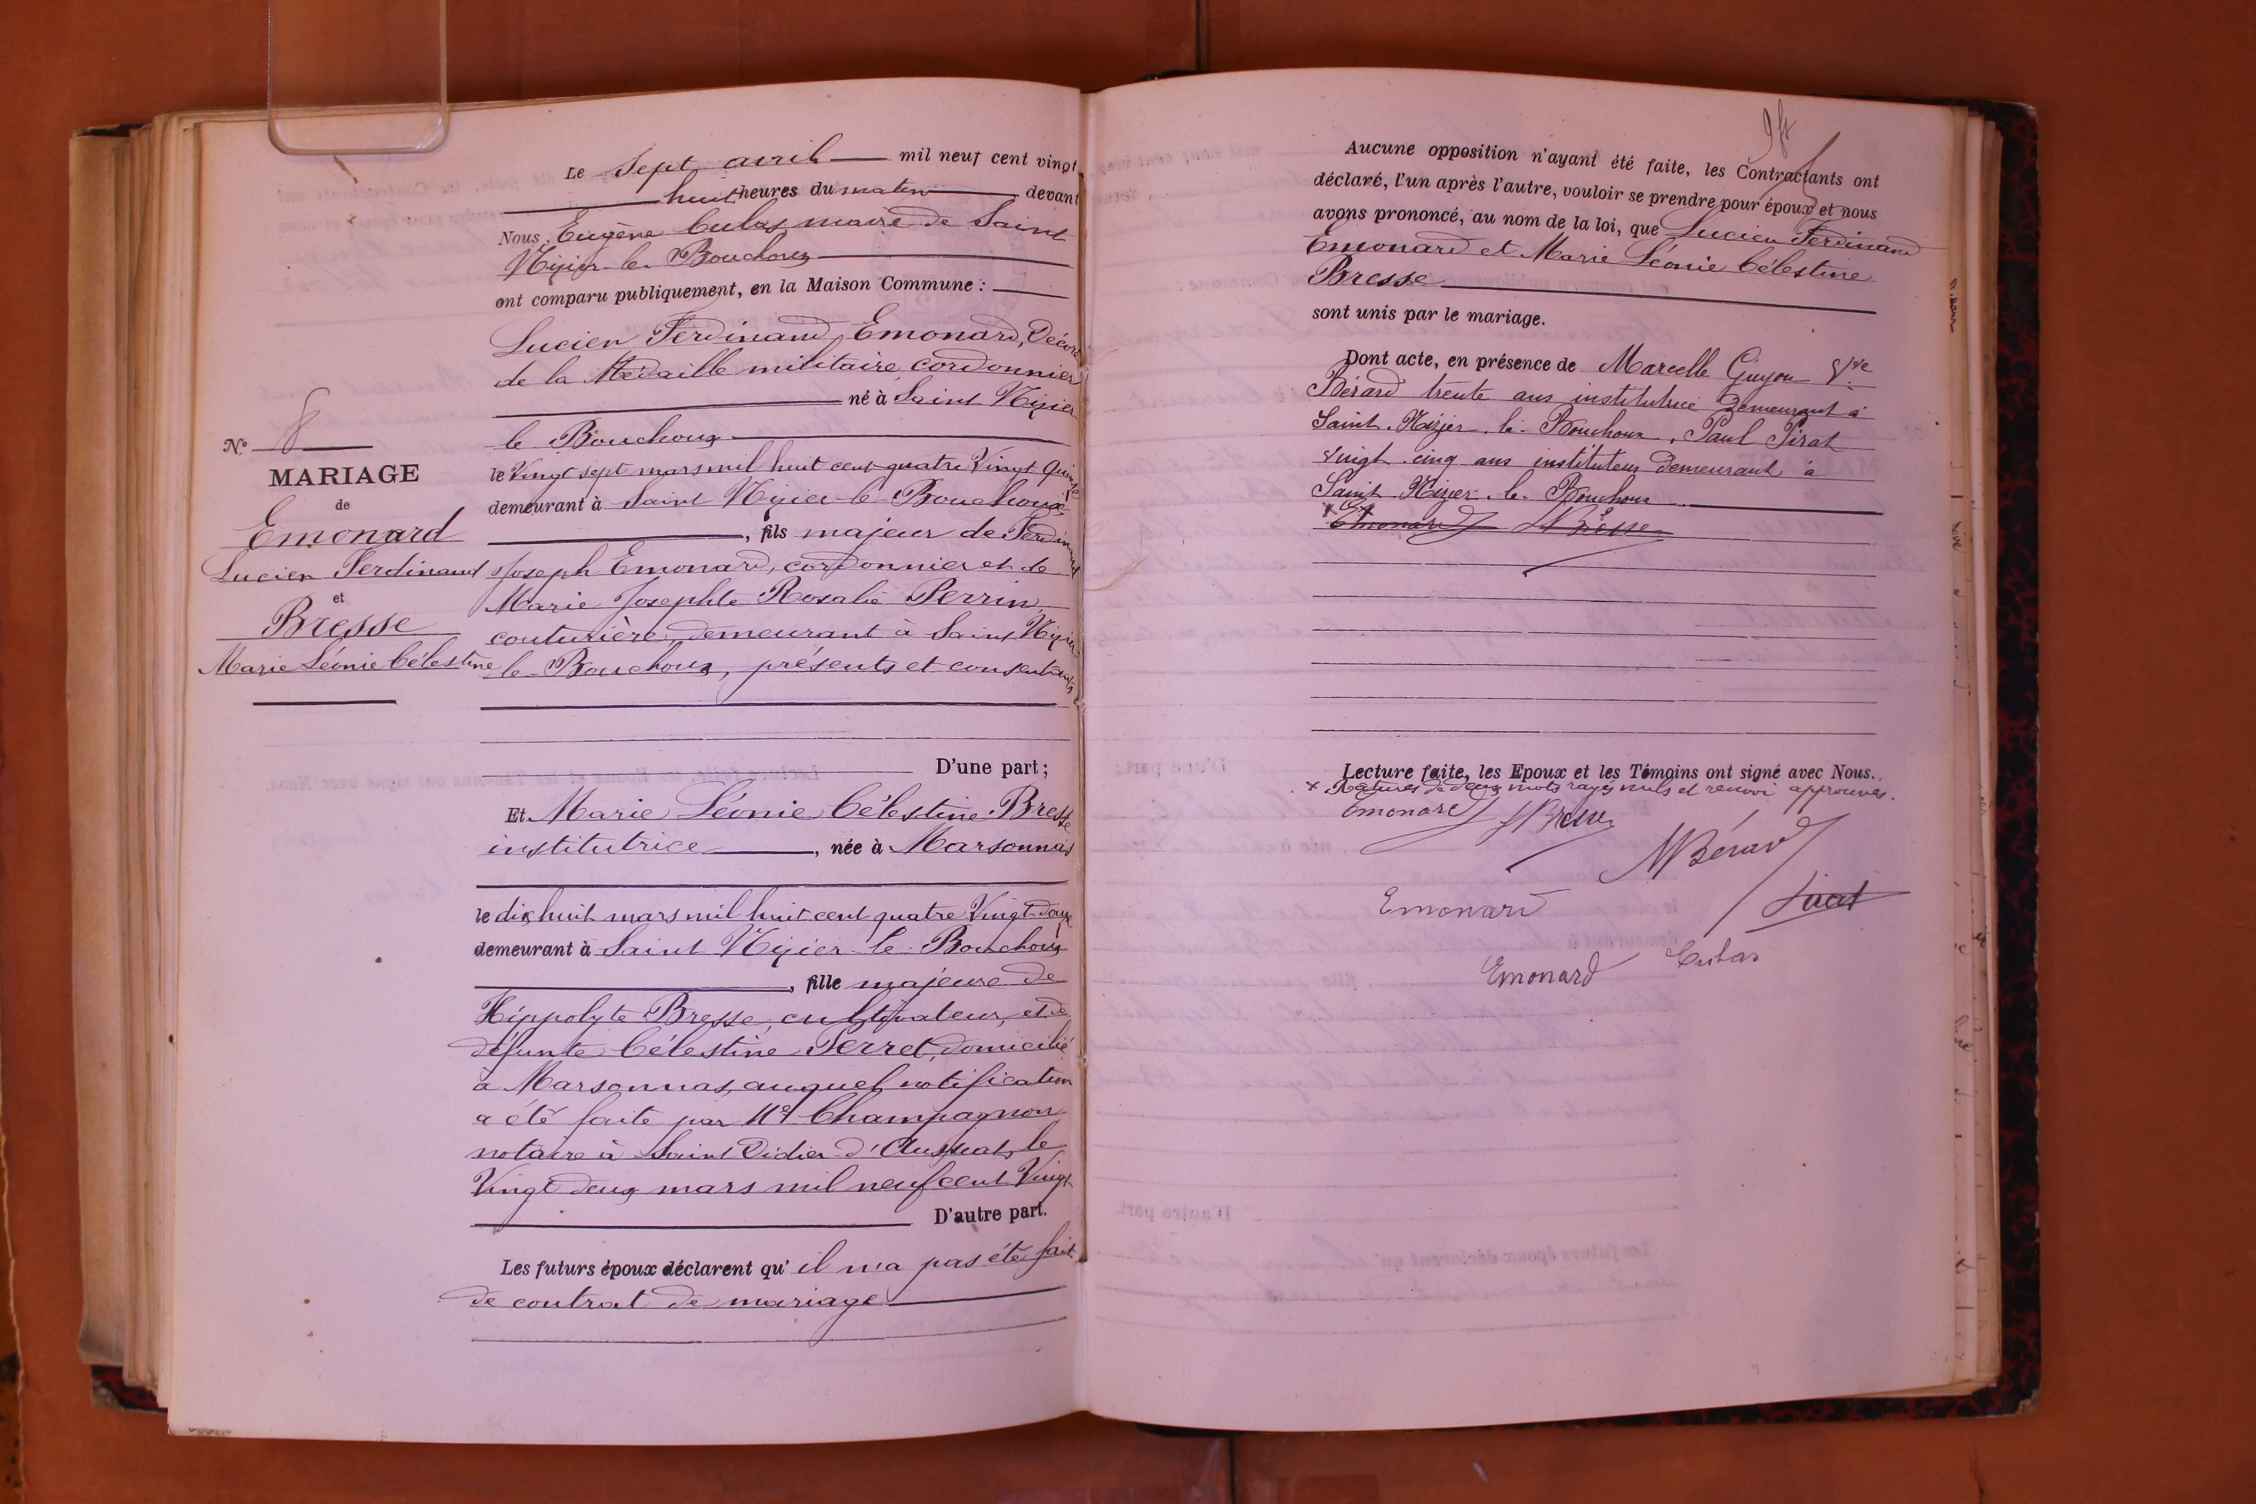 N° 8
MARIAGE
de
Emonard
Lucien Ferdinand
et
Bresse
Marie Léonie Célestine
Le Sept avril mil neuf cent vingt
huit heures du matin devant
Nous, Eugène Culas maire de Saint
Nizier-le-Bouchoux
ont comparu publiquement, en la Maison Commune :
Lucien Ferdinand Emonard, Décoré
de la Médaille militaire, cordonnier
né à Saint Nizier
le Bouchoux
le Vingt sept mars mil huit cent quatre Vingt quinze
demeurant à Saint Nizier-le-Bouchoux
, fils majeur de Ferdinand
Joseph Emonard, cordonnier et de
Marie Josephte Rosalie Perrin,
couturière, demeurant à Saint Nizier
le-Bouchoux, présents et consentants
D'une part ;
Et Marie Léonie Célestine Bresse
institutrice, née à Marsonnas
le dix huit mars mil huit cent quatre Vingt douze
demeurant à Saint Nizier-le-Bouchoux
, fille majeure de
Hippolyte Bresse, cultivateur, et de
défunte Célestine Perret, domicilié
à Marsonnas, auquel notification
a été faite par Me Champagnon
notaire à Saint Didier d'Aussiat, le
Vingt deux mars mil neuf cent Vingt
D'autre part.
Les futurs époux déclarent qu'il n'a pas été fait
de contrat de mariage
Aucune opposition n'ayant été faite, les Contractants ont
déclaré, l'un après l'autre, vouloir se prendre pour époux et nous
avons prononcé, au nom de la loi, que Lucien Ferdinand
Emonard et Marie Léonie Célestine
Bresse
sont unis par le mariage.
Dont acte, en présence de Marcelle Guyon Vve
Bérard trente ans institutrice demeurant à
Saint-Nizier-le-Bouchoux, Paul Pirat
vingt-cinq ans instituteur demeurant à
Saint-Nizier-le-Bouchoux
Emonard Bresse
Lecture faite, les Epoux et les Témoins ont signé avec Nous.
× Ratures de deux mots rayés nuls et renvoi approuvés.
Emonard LBresse
MBérard
Emonard
Pirat
Emonard
Culas